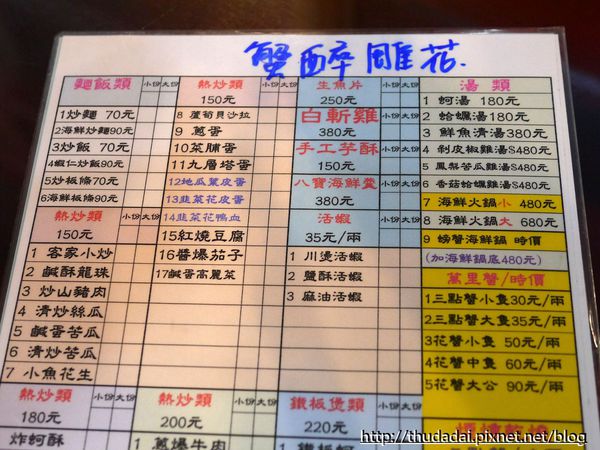 蟹醉雕花.
麵飯類 小份 大份
1炒麵 70元
2海鮮炒麵90元
3炒飯 70元
4蝦仁炒飯90元
5炒板條70元
6海鮮板條90元
熱炒類 小份 大份
150元
1 客家小炒
2 鹹酥龍珠
3 炒山豬肉
4 清炒絲瓜
5 鹹蛋苦瓜
6 清炒苦瓜
7 小魚花生
熱炒類 小份 大份
180元
炸蚵酥
熱炒類 小份 大份
150元
8 蘆筍貝沙拉
9 蔥蛋
10菜脯蛋
11九層塔蛋
12地瓜葉皮蛋
13韭菜花皮蛋
14韭菜花鴨血
15紅燒豆腐
16醬爆茄子
17鹹蛋高麗菜
熱炒類 小份 大份
200元
1 蔥爆牛肉
生魚片 小份 大份
250元
白斬雞
380元
手工芋酥
150元
八寶海鮮羹
380元
活蝦 小份 大份
35元/兩
1 川燙活蝦
2 鹽酥活蝦
3 麻油活蝦
鐵板煲類 小份 大份
220元
1 鐵板蚵
湯 類
1 蚵湯 180元
2 蛤蠣湯 180元
3 鮮魚清湯380元
4 剝皮椒雞湯S480元
5 鳳梨苦瓜雞湯S480元
6 香菇蛤蠣雞湯S480元
7 海鮮火鍋小 480元
8 海鮮火鍋大 680元
9 螃蟹海鮮鍋 時價
(加海鮮鍋底480元)
萬里蟹/時價
1三點蟹小隻30元/兩
2三點蟹大隻35元/兩
3花蟹小隻 50元/兩
4花蟹中隻 60元/兩
5花蟹大公 90元/兩
http://thudadai.pixnet.net/blog